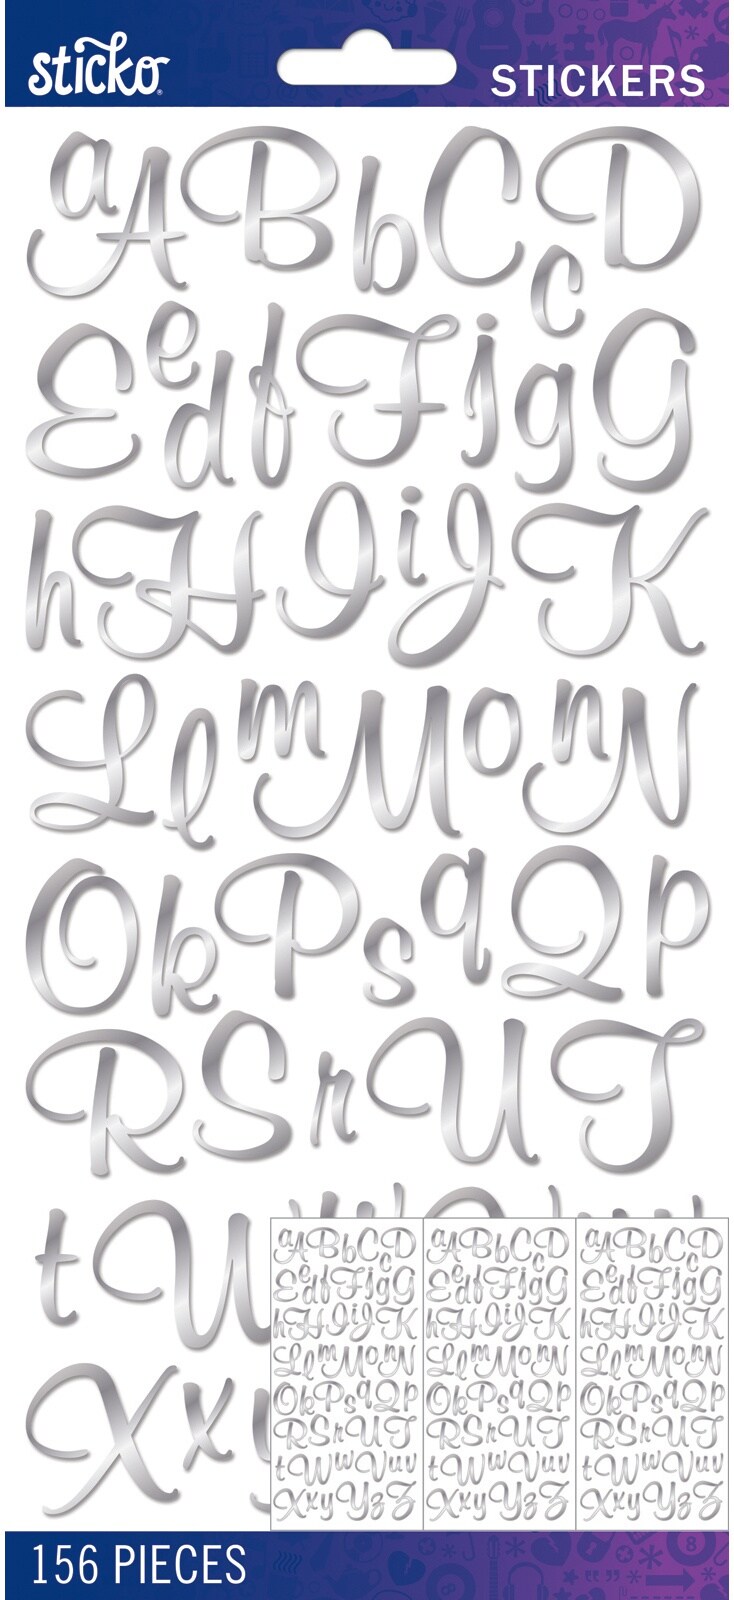 sticko
STICKERS
a A B b C c D
E e d f F j g G
h H I i J K
L l m M o n N
O k P s q Q p
R S r U T
t W
X x y
a A B b C c D
E e d f F j g G
h H I i J K
L l m M o n N
O k P s q Q p
R S r U T
t W w V u v
X x y Y z Z
a A B b C c D
E e d f F j g G
h H I i J K
L l m M o n N
O k P s q Q p
R S r U T
t W w V u v
X x y Y z Z
a A B b C c D
E e d f F j g G
h H I i J K
L l m M o n N
O k P s q Q p
R S r U T
t W w V u v
X x y Y z Z
156 PIECES